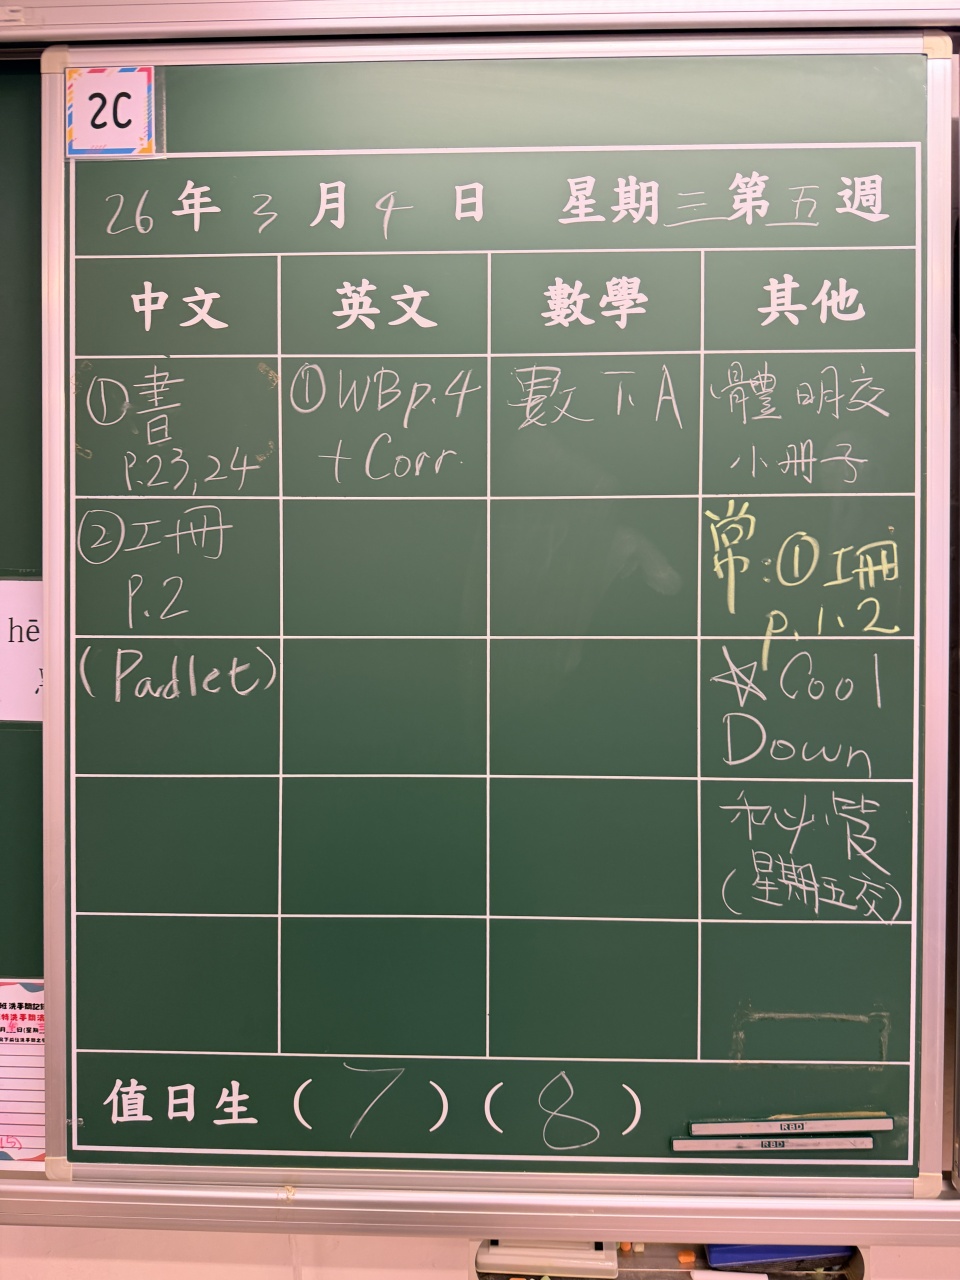 2C
26年3月4日 星期三第五週
中文 英文 數學 其他
①書
P.23,24
①WBp.4
+Corr.
數下A
體明交
小冊子
②工冊
P.2
常:①工冊
p.1、2
(Padlet)
☆Cool
Down
(星期五交)
值日生(7)(8)
RBD
RBD
hē